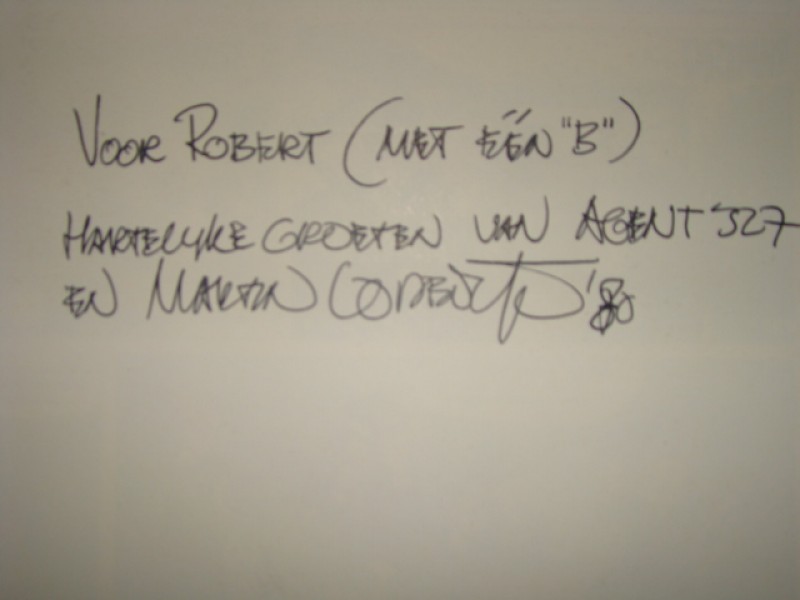 Voor Robert (met één "B")
Hartelijke groeten van Agent 327
en Martin Lodewijk '80